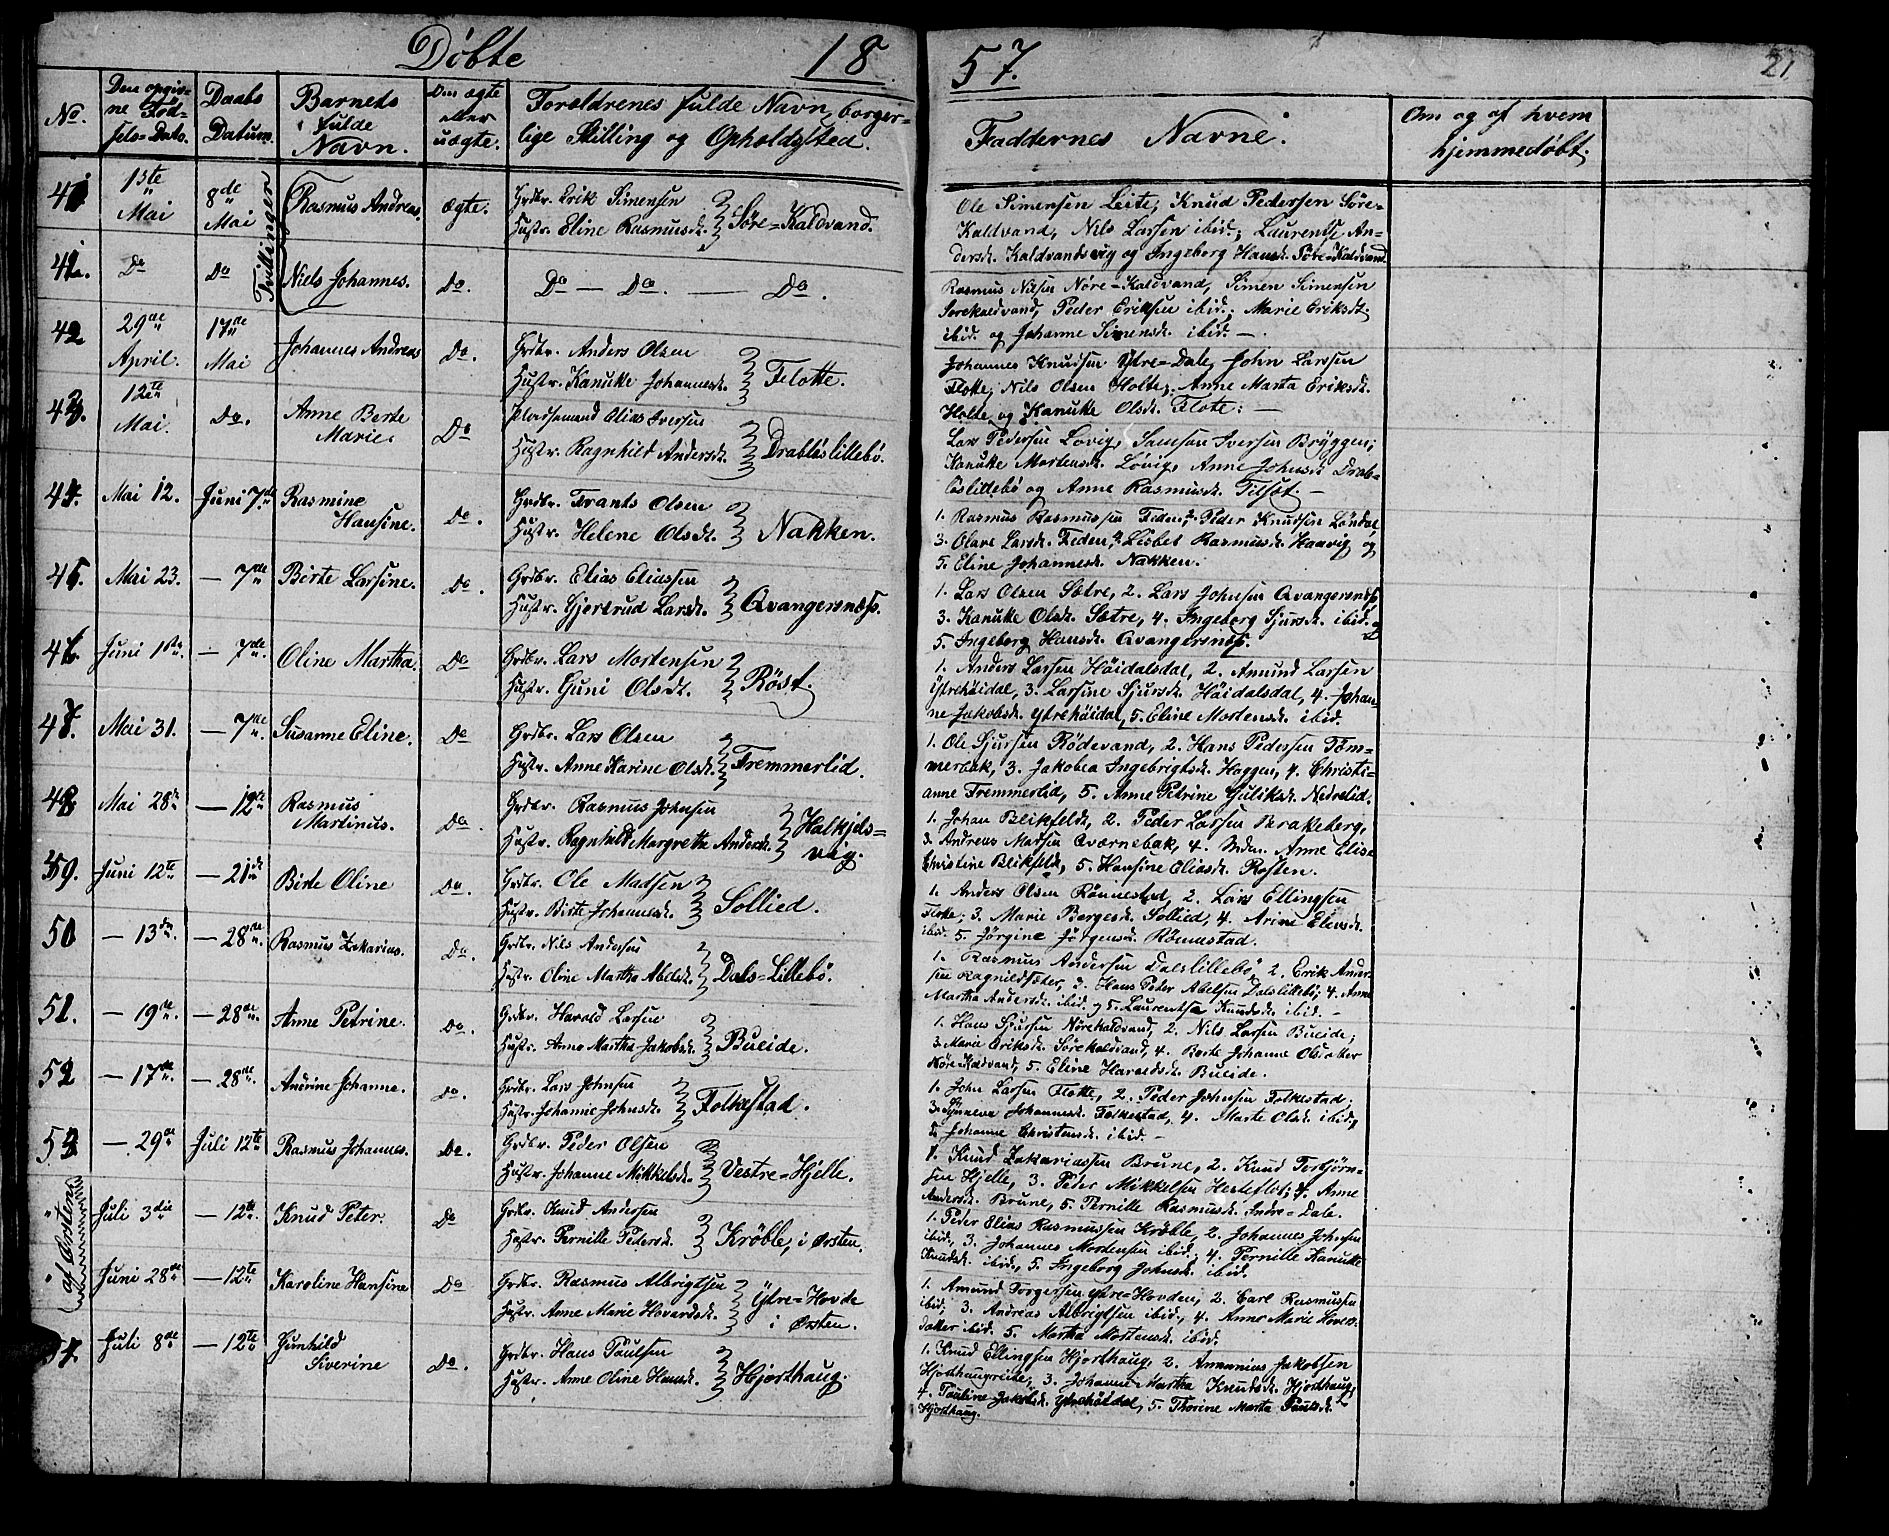 Döbte 18 57. 21
No. Den opgiv=
ne Föd=
sels=Dato. Daabs
Datum. Barnets
fulde
Navn. Om ægte
eller
uægte. Forældrenes fulde Navn, borger=
lige Stilling og Opholdssted. Faddernes Navne. Om og af hvem
hjemmedöbt.
Tvillinger
41 1ste Mai 8de Mai Rasmus Andreas. ægte. Grdbr. Erik Simensen
Hustr. Eline Rasmusdr. Söre=Kaldvand.
Ole Simensen Leite, Knud Pedersen Söre=
Kaldvand, Nils Larsen ibid.; Laurentse An=
dersdr. Kaldvandsvig og Ingeborg Hansdr. Söre=Kaldvand.
41a. Do Do Niels Johannes. Do. Do — Do. — Do.
Rasmus Nilsen Nöre=Kaldvand, Simen Simensen
Sörekaldvand, Peder Eriksen ibid., Marie Eriksdr.
ibid. og Johanne Simensdr. ibid. —
42 29de April. 17de Mai Johannes Andreas Do. Grdbr. Anders Olsen
Hustr. Kanutte Johannesdr. Flotte.
Johannes Knudsen Ytre=Dale, John Larsen
Flotte, Nils Olsen Holte, Anne Marta Eriksdr.
Holte og Kanutte Olsdr. Flote: —
43. 12te Mai. Do. Anne Berte
Marie. Do Pladsemand Elias Iversen
Hustr. Ragnhild Andersdr. Drabløslillebö.
Lars Pedersen Lovig, Samson Iversen Bryggen;
Kanutte Mortensdr. Lövig, Anne Johnsdr. Drab=
löslillebö og Anne Rasmusdr. Tilset. —
44. Mai 12. Juni 7de Rasmine
Hansine. Do. Grdbr. Frants Olsen
Hustr. Helene Olsdr. Nakken.
1. Rasmus Rasmussen Feden, 2. Peder Knudsen Löndal,
3. Olave Larsdr. Feden, Lisbet Rasmusdr. Haavig og
5. Eline Johannesdr. Nakken.
45. Mai 23. — 7de Birte Larsine. Do. Grdbr. Elias Eliassen
Hustr. Gjertrud Larsdr. Qvangersnæss.
1. Lars Olsen Sætre, 2. Lars Johnsen Qvangersnæss
3. Kanutte Olsdr. Sætre, 4. Ingeborg Sjursdr. ibid. og
5. Ingeborg Hansdr. Qvangersnæss.
46. Juni 1ste — 7de. Oline Martha. Do Grdbr. Lars Mortensen
Hustr. Guni Olsdr. Röst.
1. Anders Larsen Höidalsdal, 2. Amund Larsen
Ytrehöidal, 3. Larsine Sjursdr. Höidalsdal, 4. Johan=
ne Jakobsdr. Ytrehöidal, 5. Eline Mortensdr. ibid.
47. Mai 31. — 7de. Susanne Eline. Do Grdbr. Lars Olsen
Hustr. Anne Karine Olsdr. Fremmerlid.
1. Ole Sjursen Rödevand, 2. Hans Pedersen Töm=
merbak, 3. Jakobea Ingebrigtsdr. Haggen, 4. Christi=
anne Fremmerlid, 5. Anne Petrine Guliksdr. Nedrelid.
48. Mai 28de — 12te Rasmus
Martinus. Do. Grdbr. Rasmus Johnsen
Hustr. Ragnhild Margrethe Andersdr. Halkjels=
vig.
1. Johan Blikfeldt, 2. Peder Larsen Brakeberg,
3. Andreas Madsen Qværnebak, 4. Anne Elise
Christine Blikfeldt, 5. Hansine Eliasdr. Rosten.
49. Juni 12te — 21de Birte Oline Do. Grdbr. Ole Madsen
Hustr. Birte Johannesdr. Sollied.
1. Anders Olsen Rönnestad, 2. Lars Ellingsen
Flote; 3. Marie Børgesdr. Sollied, 4. Arine Elensdr.
ibid. 5. Jörgine Jörgensdr. Rönnestad.
50 — 13de. — 28de. Rasmus Zakarias. Do. Grdbr. Nils Andersen
Hustr. Oline Martha Abelsdr. Dals=Lillebö.
1. Rasmus Andersen Dalslillebö, 2. Erik Ander=
sen Ragnildsæter, 3. Hans Peder Abelsen Dalslillebö; 4. Anne
Martha Andersdr. ibid. og 5. Laurentse Knudsdr. ibid. —
51. — 19de — 28de. Anne Petrine. Do. Grdbr. Harald Larsen
Hustr. Anne Martha Jakobsdr. Bueide.
1. Hans Sjursen Nörekaldvand, 2. Nils Larsen Bueide;
3. Marie Eriksdr. Sörekaldvand, 4. Berte Johanne Olsdatter
Nöre=Kaldvand, 5. Eline Haraldsdr. Bueide.
52 — 17de — 28de. Andrine Johanne. Do. Grdbr. Lars Johnsen
Hustr. Johanne Johnsdr. Folkestad.
1. John Larsen Flotte, 2. Peder Johnsen Folkestad;
3. Synneva Johannesdr. Folkestad, 4. Marte Olsdr. ibid.,
5. Johanne Christensdr. ibid. —
53 — 29de Juli 12te Rasmus Johannes. Do. Grdbr. Peder Olsen
Hustr. Johanne Mikkelsdr. Vestre=Hjelle.
1. Knud Zakariassen Brune, 2. Knud Torbjörn=
sen Hjelle, 3. Peder Mikkelsen Hesteflot; 4. Anne
Andersdr. Brune, 5. Pernille Rasmusdr. Indre=Dale.
af Ørsten
" Juli 3die — 12te. Knud Peter. Do Grdbr. Knud Andersen
Hustr. Pernille Pedersdr. Kröble, i Ørsten.
1. Peder Elias Rasmussen Kröble, 2. Johannes Johnsen
ibid., 3. Johannes Mortensen ibid.; 4. Pernille Kanutte
Knudsdr. ibid., 5. Ingeborg Johnsdr. ibid.
" Juni 28de — 12te Karoline Hansine Do Grdbr. Rasmus Albrigtsen
Hustr. Anne Marie Hovardsdr. Ytre=Hovde
i Ørsten.
1. Amund Torgersen Ytre=Hovden, 2. Carl Rasmussen
ibid., 3. Andreas Albrigtsen ibid., 4. Anne Marie Hovers=
datter ibid. 5. Martha Mortensdr. ibid.
54. Juli 8de — 12te Gunhild
Siverine Do. Grdbr. Hans Paulsen
Hustr. Anne Oline Hansdr. Hjorthaug.
1. Knud Ellingsen Hjorthaug, 2. Ananias Jakobsen
Hjorthaugreite, 3. Johanne Martha Knudsdr. Hjorthaug,
4. Pauline Jakobsdr. Ytrehöidal, 5. Thorine Marta Paulsdr.
Hjorthaug.